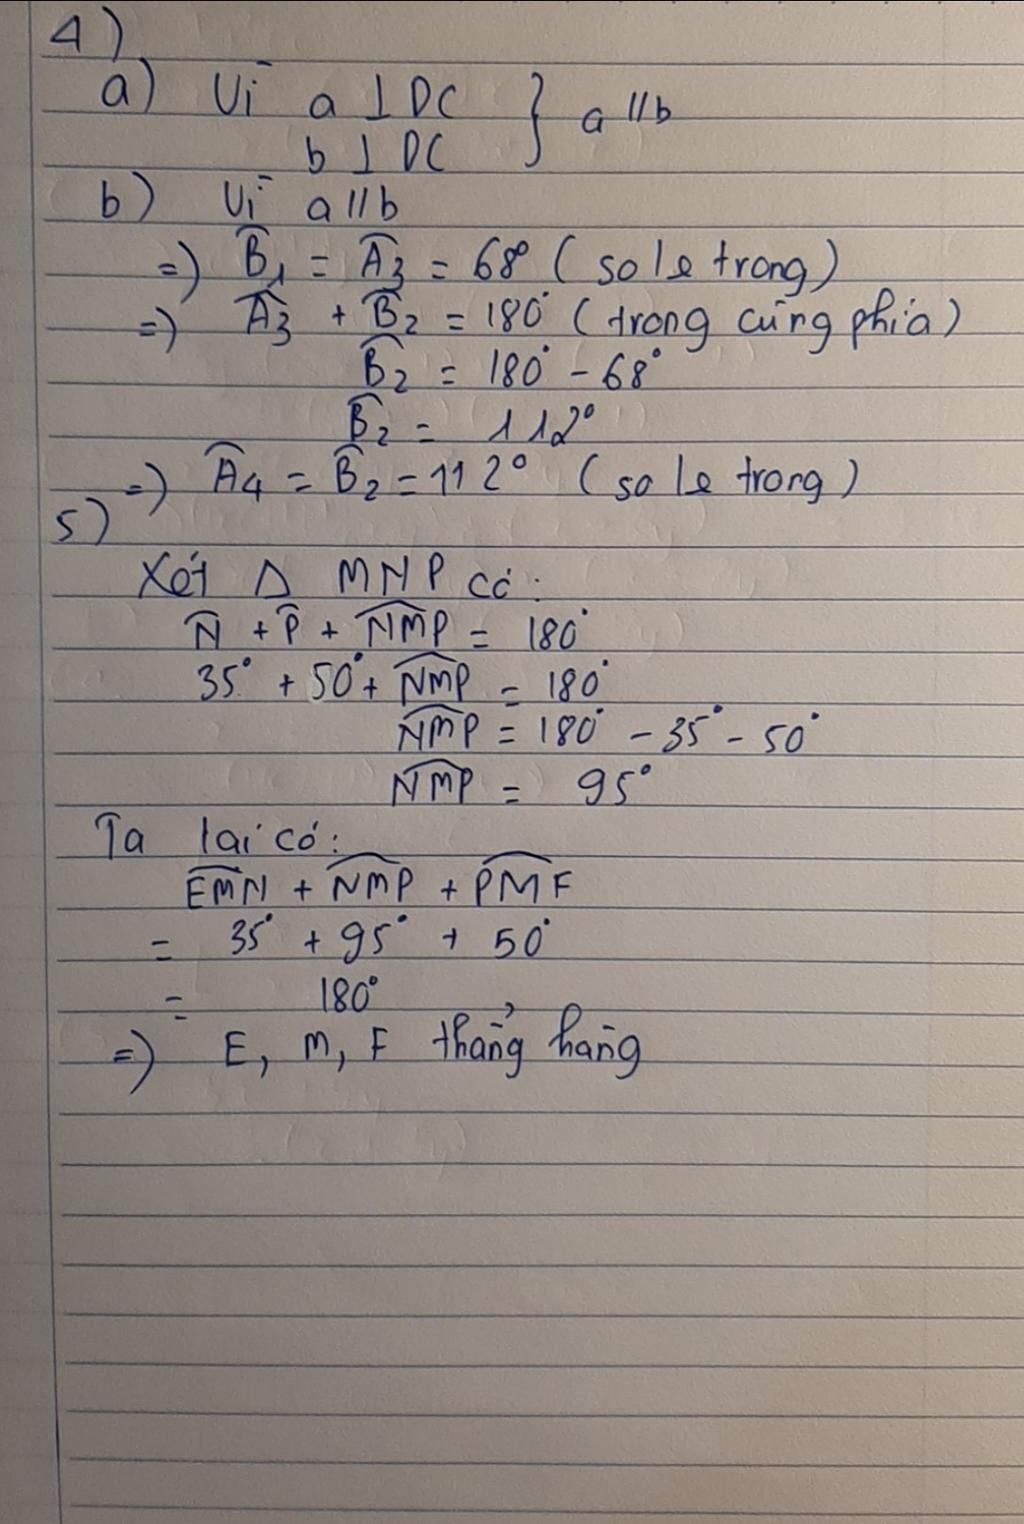 4)
a) Vì a ⊥ DC } a // b
b ⊥ DC
b) Vì a // b
=) B̂₁ = Â₃ = 68° ( so le trong )
=) Â₃ + B̂₂ = 180° ( trong cùng phía )
B̂₂ = 180° - 68°
B̂₂ = 112°
=) Â₄ = B̂₂ = 112° ( so le trong )
5)
Xét Δ MNP có :
N̂ + P̂ + NMP̂ = 180°
35° + 50° + NMP̂ = 180°
NMP̂ = 180° - 35° - 50°
NMP̂ = 95°
Ta lại có :
EMN̂ + NMP̂ + PMF̂
= 35° + 95° + 50°
= 180°
=) E, M, F thẳng hàng